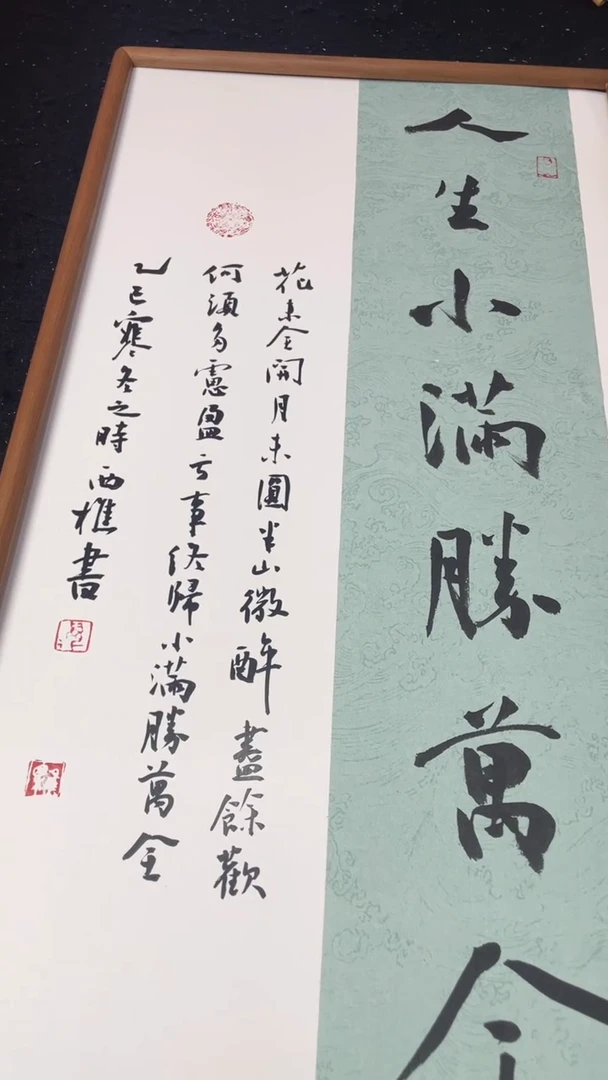 人生小滿勝萬全
花未全開月未圓半山微醉盡餘歡
何須多慮盈亏事终歸小滿勝萬全
乙巳寒冬之時西樵書